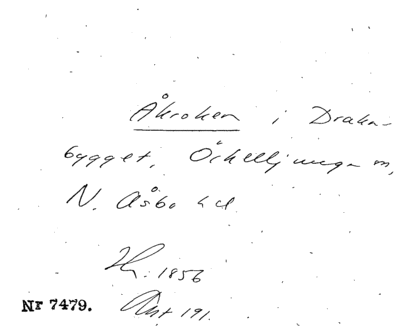 Åkroken i Draka-
bygget, Örkelljunga sn,
N. Åsbo hd
Hr. 1856
Nr 7479.
Ant 191.